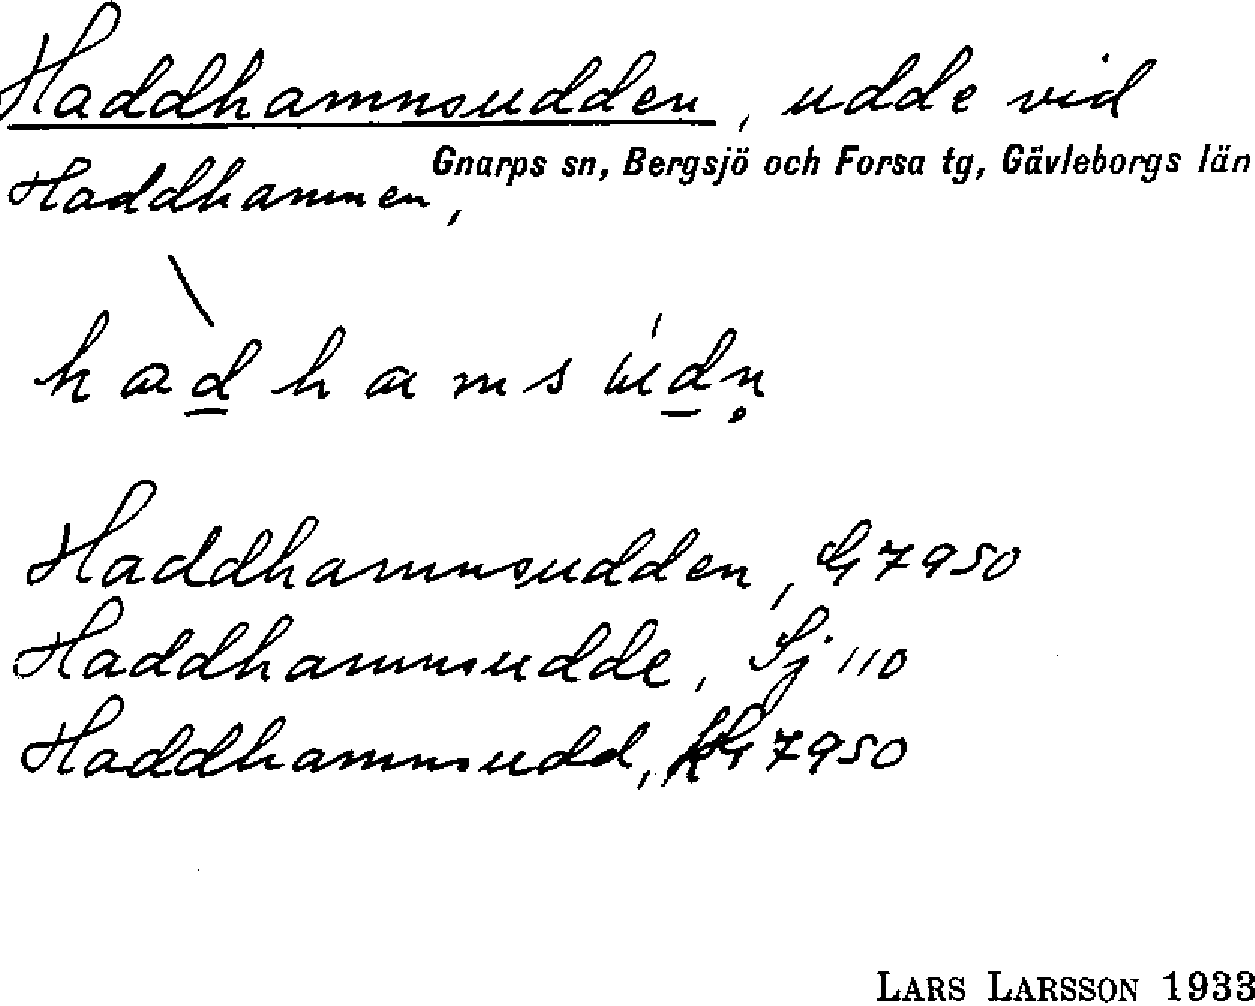 Haddhamnsudden, udde vid
Gnarps sn, Bergsjö och Forsa tg, Gävleborgs län
Haddhamnen,
Haddhamnsudden, G 7950
Haddhamnsudde, Sj 110
Haddhamnsudd, 7950
LARS LARSSON 1933